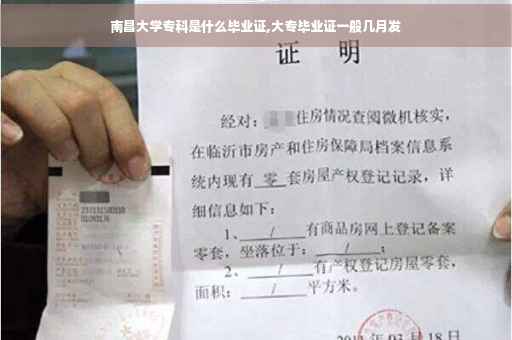 南昌大学专科是什么毕业证,大专毕业证一般几月发
证 明
经对: 住房情况查阅微机核实,
在临沂市房产和住房保障局档案信息系
统内现有 零 套房屋产权登记记录,详
细信息如下:
1、 / 有商品房网上登记备案
零套,坐落位于: / ;
2、 / 有产权登记房屋零套,
面积: / 平方米。
03 月 18 日